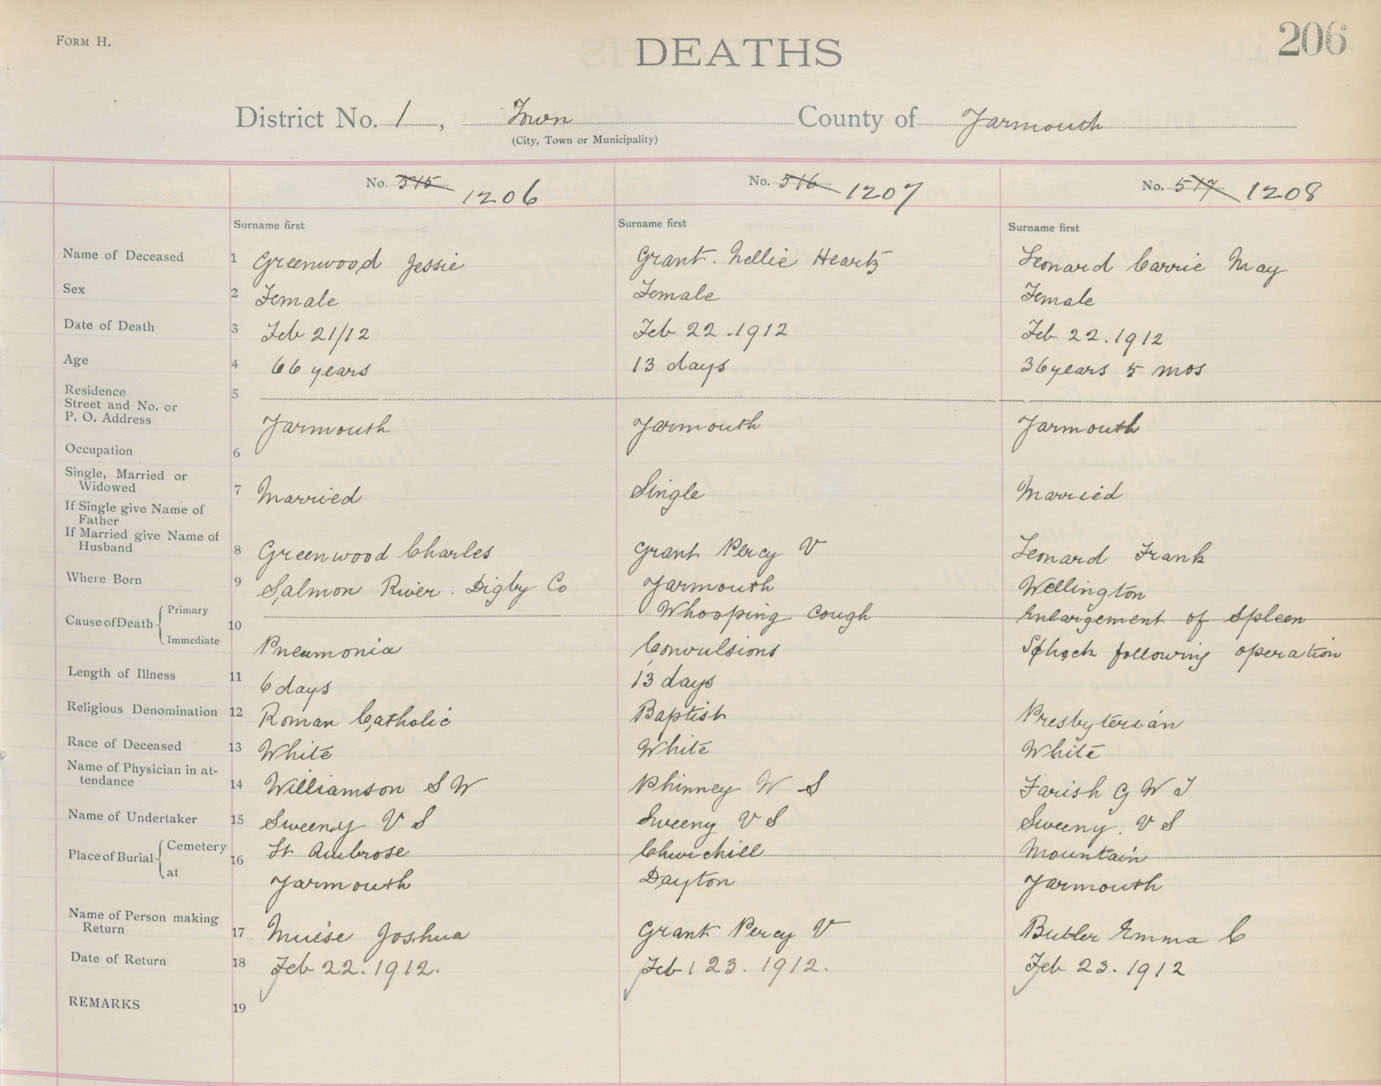 FORM H.
DEATHS
206
District No. 1, Town County of Yarmouth
(City, Town or Municipality)
No. 515 1206 No. 516 1207 No. 517 1208
Surname first Surname first Surname first
Name of Deceased 1 Greenwood Jessie Grant. Nellie Heartz Leonard Carrie May
Sex 2 Female Female Female
Date of Death 3 Feb 21/12 Feb 22.1912 Feb 22.1912
Age 4 66 years 13 days 36 years 5 mos
Residence 5
Street and No. or
P. O. Address Yarmouth Yarmouth Yarmouth
Occupation 6
Single, Married or
Widowed 7 Married Single Married
If Single give Name of
Father
If Married give Name of
Husband 8 Greenwood Charles Grant Percy V Leonard Frank
Where Born 9 Salmon River. Digby Co Yarmouth Wellington
Cause of Death 10 Primary Whooping cough Enlargement of Spleen
Immediate Pneumonia Convulsions Shock following operation
Length of Illness 11 6 days 13 days
Religious Denomination 12 Roman Catholic Baptist Presbyterian
Race of Deceased 13 White White White
Name of Physician in at-
tendance 14 Williamson S W Phinney W S Farish G W T
Name of Undertaker 15 Sweeny V S Sweeny V S Sweeny. V S
Place of Burial 16 Cemetery St Ambrose Churchill Mountain
at Yarmouth Dayton Yarmouth
Name of Person making
Return 17 Muise Joshua Grant Percy V Butler Emma C
Date of Return 18 Feb 22.1912. Feb 23.1912. Feb 23.1912
REMARKS 19